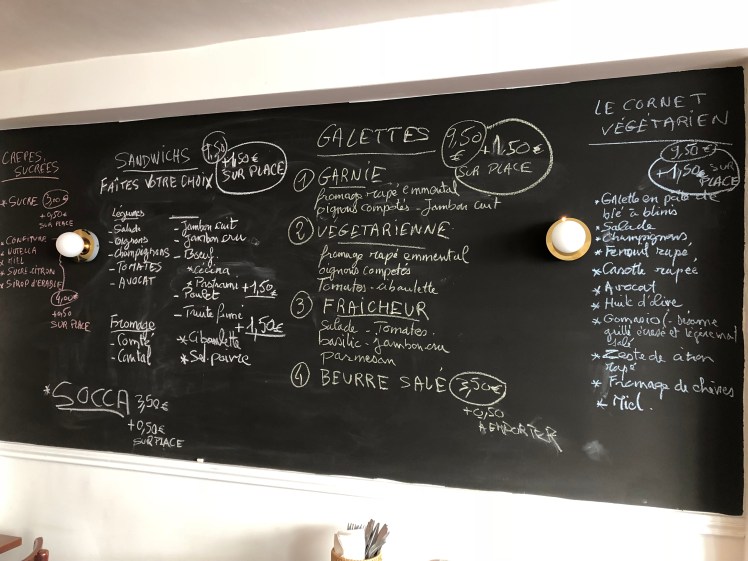 CREPES
SUCRÉES
* SUCRE 3,00
+0,50€
SUR PLACE
* CONFITURE
* NUTELLA
* MIEL
* SUCRE CITRON
* SIROP D'ERABLE
4,00€
+0,50
SUR PLACE
SANDWICHS 9,50
+1,50€
SUR PLACE
FAITES VOTRE CHOIX
Légumes
- Salade
- Oignons
- Champignons
- TOMATES
- AVOCAT
Fromage
- Comté
- Cantal
- Jambon cuit
- Jambon cru
- Boeuf
* cecina
* Pastrami +1,50
- Poulet
- Truite fumé
+1,50€
* Ciboulette
* Sel-poivre
* SOCCA 3,50€
+0,50€
SUR PLACE
GALETTES 9,50€
+1,50€
SUR PLACE
1 GARNIE
fromage rapé emmental
oignons compotés - Jambon cuit
2 VEGETARIENNE
fromage rapé emmental
oignons compotés
Tomates - ciboulette
3 FRAICHEUR
Salade - Tomates -
basilic - jambon cru
parmesan
4 BEURRE SALÉ 3,50€
+0,50
A EMPORTER
LE CORNET
VÉGÉTARIEN
9,50€
+1,50€ SUR
PLACE
* Galette en pate de
blé à blinis
* Salade
* Champignons,
* Fenouil rapé,
* Carotte rapée
* Avocat
* Huile d'olive
* Gomasio (- Sésame
grillé écrasé et légèrement
salé
* Zeste de citron
rapé
* Fromage de chèvres
* Miel.